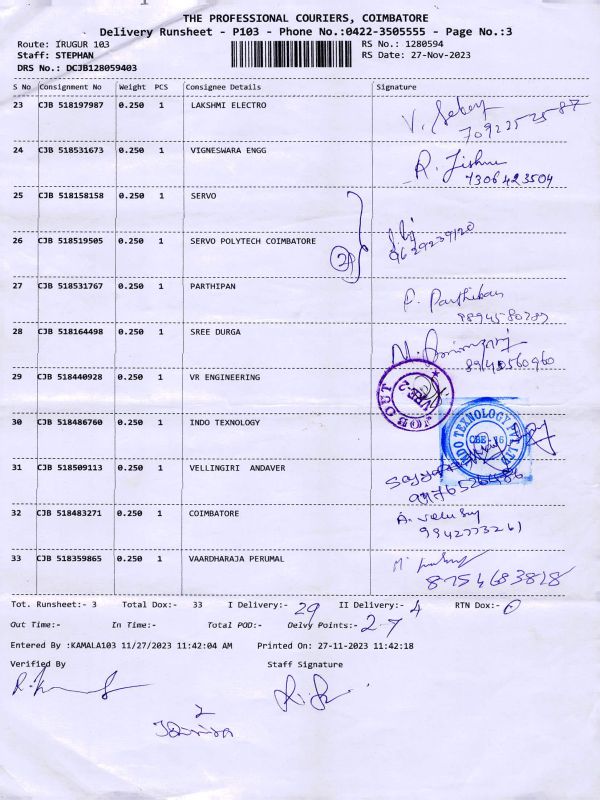 THE PROFESSIONAL COURIERS, COIMBATORE
Delivery Runsheet - P103 - Phone No.:0422-3505555 - Page No.:3
Route: IRUGUR 103 RS No.: 1280594
Staff: STEPHAN RS Date: 27-Nov-2023
DRS No.: DCJB128059403
S No Consignment No Weight PCS Consignee Details Signature
23 CJB 518197987 0.250 1 LAKSHMI ELECTRO
24 CJB 518531673 0.250 1 VIGNESWARA ENGG
7306423504
25 CJB 518158158 0.250 1 SERVO
26 CJB 518519505 0.250 1 SERVO POLYTECH COIMBATORE
9629239120
27 CJB 518531767 0.250 1 PARTHIPAN P. Parthiban
28 CJB 518164498 0.250 1 SREE DURGA
29 CJB 518440928 0.250 1 VR ENGINEERING
FOR OUT
30 CJB 518486760 0.250 1 INDO TEXNOLOGY
INDO TEXNOLOGY PVT LTD
CBE-16
31 CJB 518509113 0.250 1 VELLINGIRI ANDAVER
32 CJB 518483271 0.250 1 COIMBATORE
9942773261
33 CJB 518359865 0.250 1 VAARDHARAJA PERUMAL
8754683828
Tot. Runsheet:- 3 Total Dox:- 33 I Delivery:- 29 II Delivery:- 4 RTN Dox:- 0
Out Time:- In Time:- Total POD:- Delvy Points:- 27
Entered By :KAMALA103 11/27/2023 11:42:04 AM Printed On: 27-11-2023 11:42:18
Verified By Staff Signature